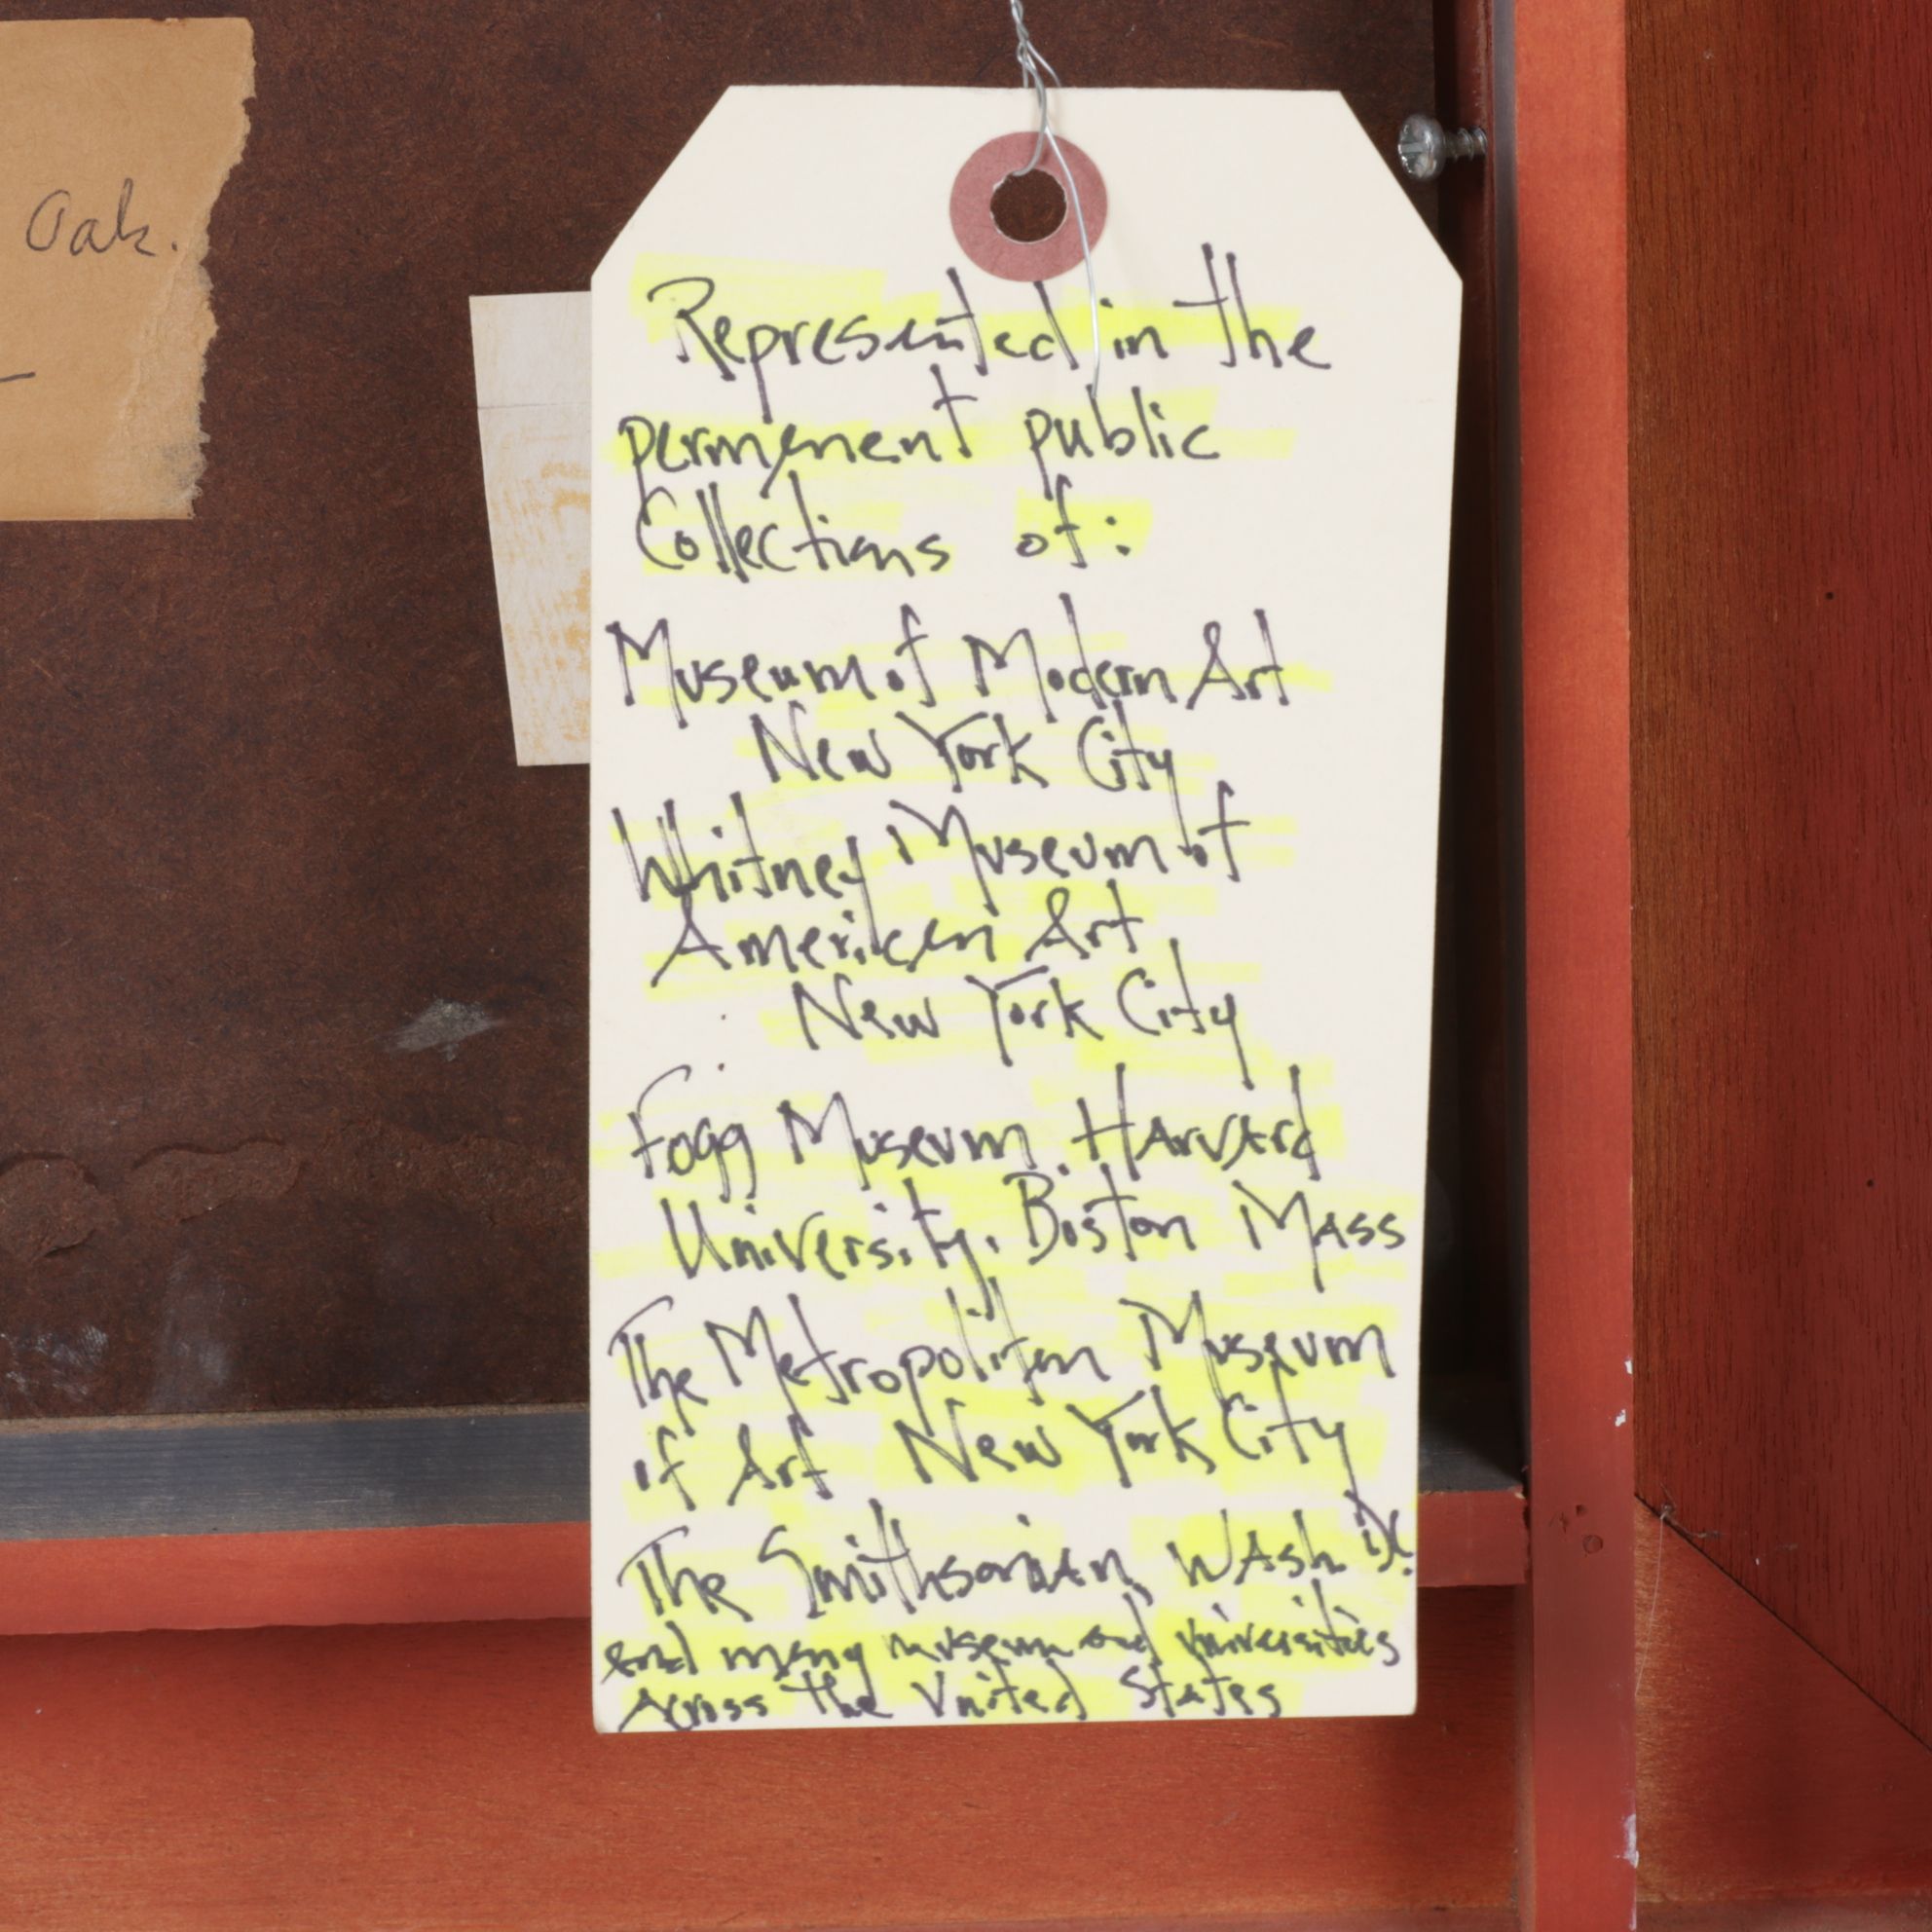 Oak.
Represented in the
permanent public
Collections of:
Museum of Modern Art
New York City
Whitney Museum of
American Art
New York City
Fogg Museum. Harvard
University, Boston Mass
The Metropolitan Museum
of Art New York City
The Smithsonian, Wash DC.
and many museum and universities
Across the United States